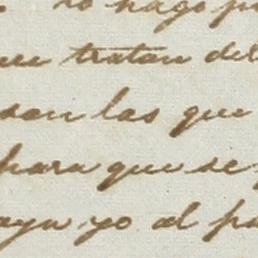 lo hago p
que tratan del
son las que
para que se
aya yo al pa